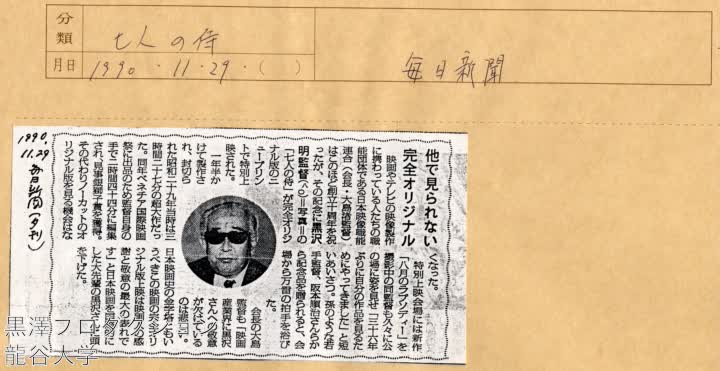 分類
七人の侍
月日
1990・11・29・( )
毎日新聞
1990
11.29
毎日新聞(夕刊)
他で見られない
完全オリジナル
映画やテレビの映像製作
に携わっている人たちの職
能団体である日本映像職能
連合（会長・大島渚監督）
はこのほど創立十周年を祝
ったが、その記念に黒沢
明監督＝写真＝の
「七人の侍」が完全オリジ
ナル版のニ
ュープリン
トで特別上
映された。
一年半か
けて製作さ
れ、封切ら
れた昭和二十九年当時は三
時間二十七分の超大作だっ
た。同年ベネチア国際映画
祭に出品のため監督自身の
手で二時間四十四分に編集
され、見事銀獅子賞を獲得。
その代わりノーカットのオ
リジナル版を見る機会はな
くなった。
特別上映会場には新作
「八月のラプソディー」を
撮影中の同監督も久々に公
の場に姿を見せ「三十六年
ぶりに自分の作品を見るた
めにやってきました」と短
いあいさつ。孫のような若
手監督、阪本順治さんらか
ら記念品を贈られると、会
場から万雷の拍手を浴び
た。
会長の大島
監督も「映画
産業界に黒沢
さんへの敬意
が欠けている
のは悲しい。
日本映画史の金字塔ともい
うべきこの映画の完全オリ
ジナル版上映は映画人の感
謝と敬意の最大の表れで
す」と日本映画を国際的に
した大先輩の黒沢さんに頭
を下げた。
黒澤フロ
龍谷大学